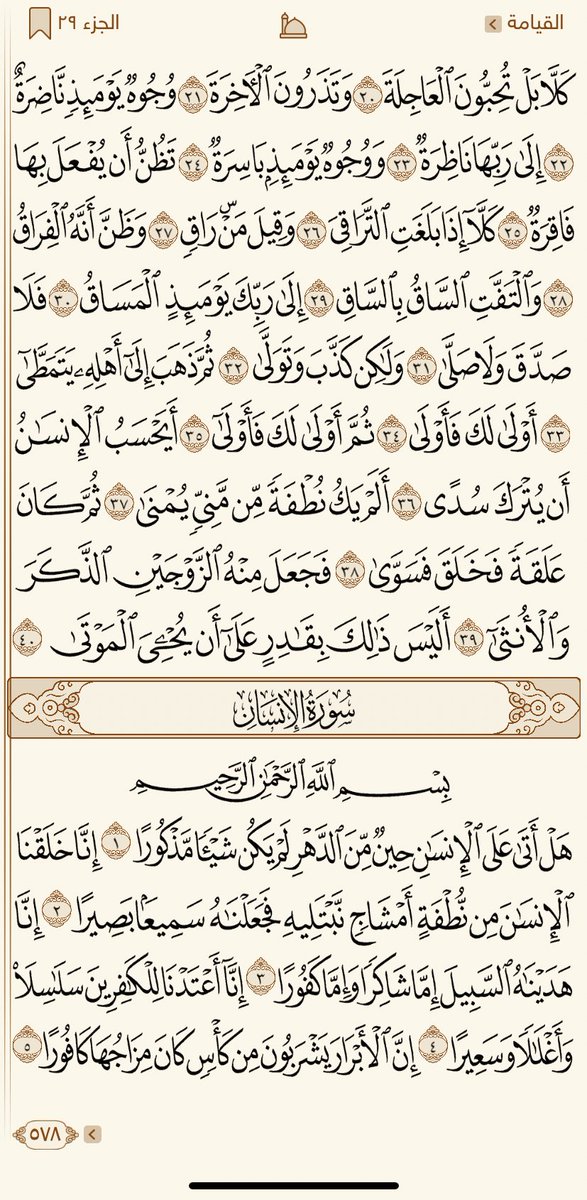 القيامة
الجزء ٢٩
كَلَّا بَلْ تُحِبُّونَ ٱلْعَاجِلَةَ ٢٠ وَتَذَرُونَ ٱلْأَخِرَةَ ٢١ وُجُوهٌ يَوْمَئِذٍ نَّاضِرَةٌ
٢٢ إِلَىٰ رَبِّهَا نَاظِرَةٌ ٢٣ وَوُجُوهٌ يَوْمَئِذٍۭ بَاسِرَةٌ ٢٤ تَظُنُّ أَن يُفْعَلَ بِهَا
فَاقِرَةٌ ٢٥ كَلَّآ إِذَا بَلَغَتِ ٱلتَّرَاقِيَ ٢٦ وَقِيلَ مَنْۜ رَاقٍ ٢٧ وَظَنَّ أَنَّهُ ٱلْفِرَاقُ
٢٨ وَٱلْتَفَّتِ ٱلسَّاقُ بِٱلسَّاقِ ٢٩ إِلَىٰ رَبِّكَ يَوْمَئِذٍ ٱلْمَسَاقُ ٣٠ فَلَا
صَدَّقَ وَلَا صَلَّىٰ ٣١ وَلَٰكِن كَذَّبَ وَتَوَلَّىٰ ٣٢ ثُمَّ ذَهَبَ إِلَىٰٓ أَهْلِهِۦ يَتَمَطَّىٰٓ
٣٣ أَوْلَىٰ لَكَ فَأَوْلَىٰ ٣٤ ثُمَّ أَوْلَىٰ لَكَ فَأَوْلَىٰٓ ٣٥ أَيَحْسَبُ ٱلْإِنسَٰنُ
أَن يُتْرَكَ سُدًى ٣٦ أَلَمْ يَكُ نُطْفَةً مِّن مَّنِىٍّ يُمْنَىٰ ٣٧ ثُمَّ كَانَ
عَلَقَةً فَخَلَقَ فَسَوَّىٰ ٣٨ فَجَعَلَ مِنْهُ ٱلزَّوْجَيْنِ ٱلذَّكَرَ
وَٱلْأُنثَىٰٓ ٣٩ أَلَيْسَ ذَٰلِكَ بِقَٰدِرٍ عَلَىٰٓ أَن يُحْـِۧىَ ٱلْمَوْتَىٰ ٤٠
سُورَةُ الإِنسَانِ
بِسْمِ ٱللَّهِ ٱلرَّحْمَٰنِ ٱلرَّحِيمِ
هَلْ أَتَىٰ عَلَى ٱلْإِنسَٰنِ حِينٌ مِّنَ ٱلدَّهْرِ لَمْ يَكُن شَيْـًٔا مَّذْكُورًا ١ إِنَّا خَلَقْنَا
ٱلْإِنسَٰنَ مِن نُّطْفَةٍ أَمْشَاجٍ نَّبْتَلِيهِ فَجَعَلْنَٰهُ سَمِيعًۢا بَصِيرًا ٢ إِنَّا
هَدَيْنَٰهُ ٱلسَّبِيلَ إِمَّا شَاكِرًا وَإِمَّا كَفُورًا ٣ إِنَّآ أَعْتَدْنَا لِلْكَٰفِرِينَ سَلَٰسِلَا۟
وَأَغْلَٰلًا وَسَعِيرًا ٤ إِنَّ ٱلْأَبْرَارَ يَشْرَبُونَ مِن كَأْسٍ كَانَ مِزَاجُهَا كَافُورًا ٥
٥٧٨